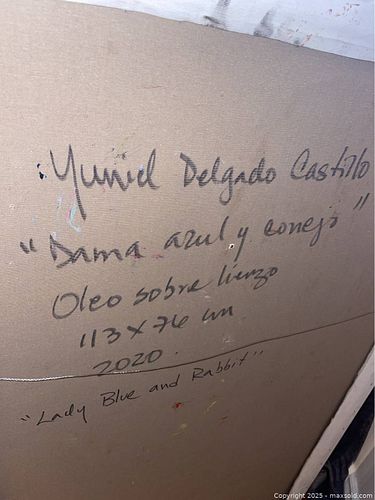 Yuniel Delgado Castillo
"Dama azul y conejo"
Oleo sobre lienzo
113 x 76 cm
2020.
"Lady Blue and Rabbit"
Copyright 2025 - maxsold.com